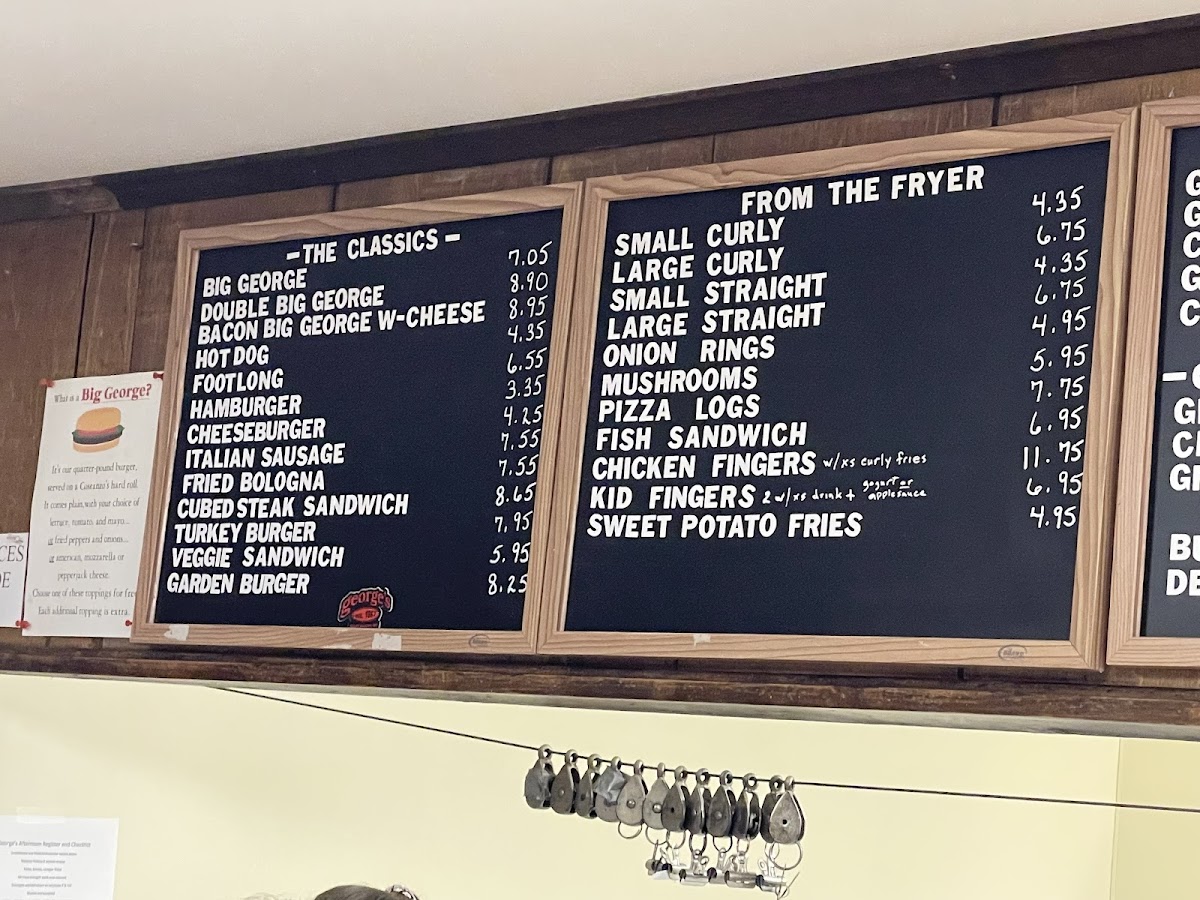 What is a Big George?
It's our quarter-pound burger,
served on a Costanzo's hard roll.
It comes plain, with your choice of
lettuce, tomato, and mayo...
or fried peppers and onions...
or american, mozzarella or
pepperjack cheese.
Choose one of these toppings for free
Each additional topping is extra.
CES
DE
– THE CLASSICS –
BIG GEORGE 7.05
DOUBLE BIG GEORGE 8.90
BACON BIG GEORGE W-CHEESE 8.95
HOT DOG 4.35
FOOTLONG 6.55
HAMBURGER 3.35
CHEESEBURGER 4.25
ITALIAN SAUSAGE 7.55
FRIED BOLOGNA 7.55
CUBED STEAK SANDWICH 8.65
TURKEY BURGER 7.95
VEGGIE SANDWICH 5.95
GARDEN BURGER 8.25
george's
FROM THE FRYER
SMALL CURLY 4.35
LARGE CURLY 6.75
SMALL STRAIGHT 4.35
LARGE STRAIGHT 6.75
ONION RINGS 4.95
MUSHROOMS 5.95
PIZZA LOGS 7.75
FISH SANDWICH 6.95
CHICKEN FINGERS w/xs curly fries 11.75
KID FINGERS 2 w/xs drink + yogurt or applesauce 6.95
SWEET POTATO FRIES 4.95
G
G
C
G
C
GR
BU
DE
George's Afternoon Register and Checklist